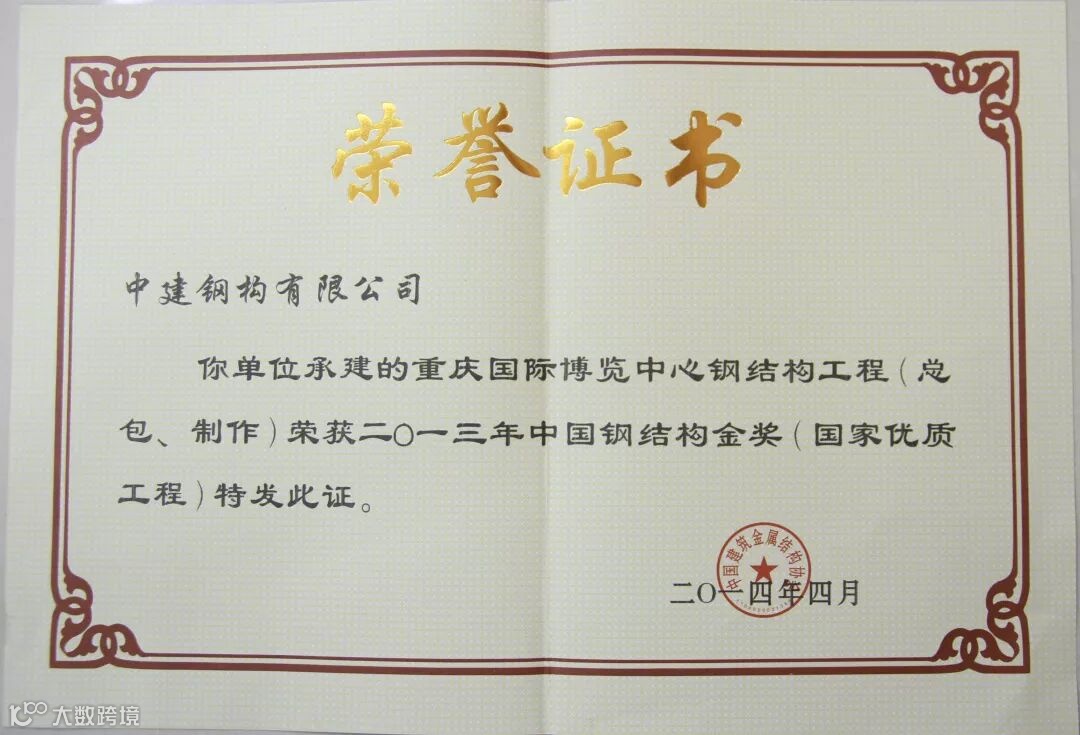 荣誉证书
中建钢构有限公司
你单位承建的重庆国际博览中心钢结构工程（总
包、制作）荣获二〇一三年中国钢结构金奖（国家优质
工程）特发此证。
中国建筑金属结构协会
二〇一四年四月
大数跨境